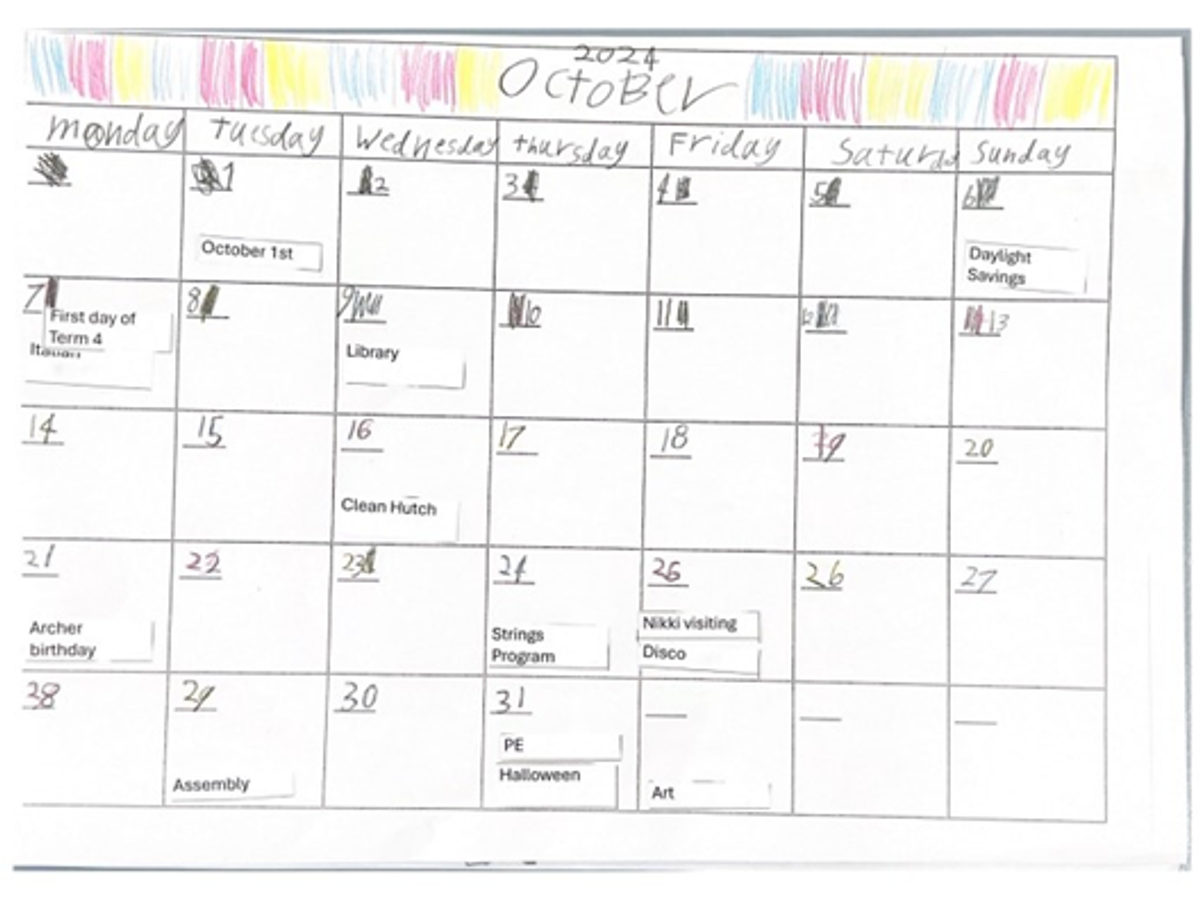 2024
OctoBer
monday tuesday Wednesday thursday Friday Saturd Sunday
1 2 3 4 5 6
October 1st
Daylight
Savings
7 8 9 10 11 12 13
First day of
Term 4
Italian
Library
14 15 16 17 18 19 20
Clean Hutch
21 22 23 24 25 26 27
Archer
birthday
Strings
Program
Nikki visiting
Disco
28 29 30 31
Assembly
PE
Halloween
Art